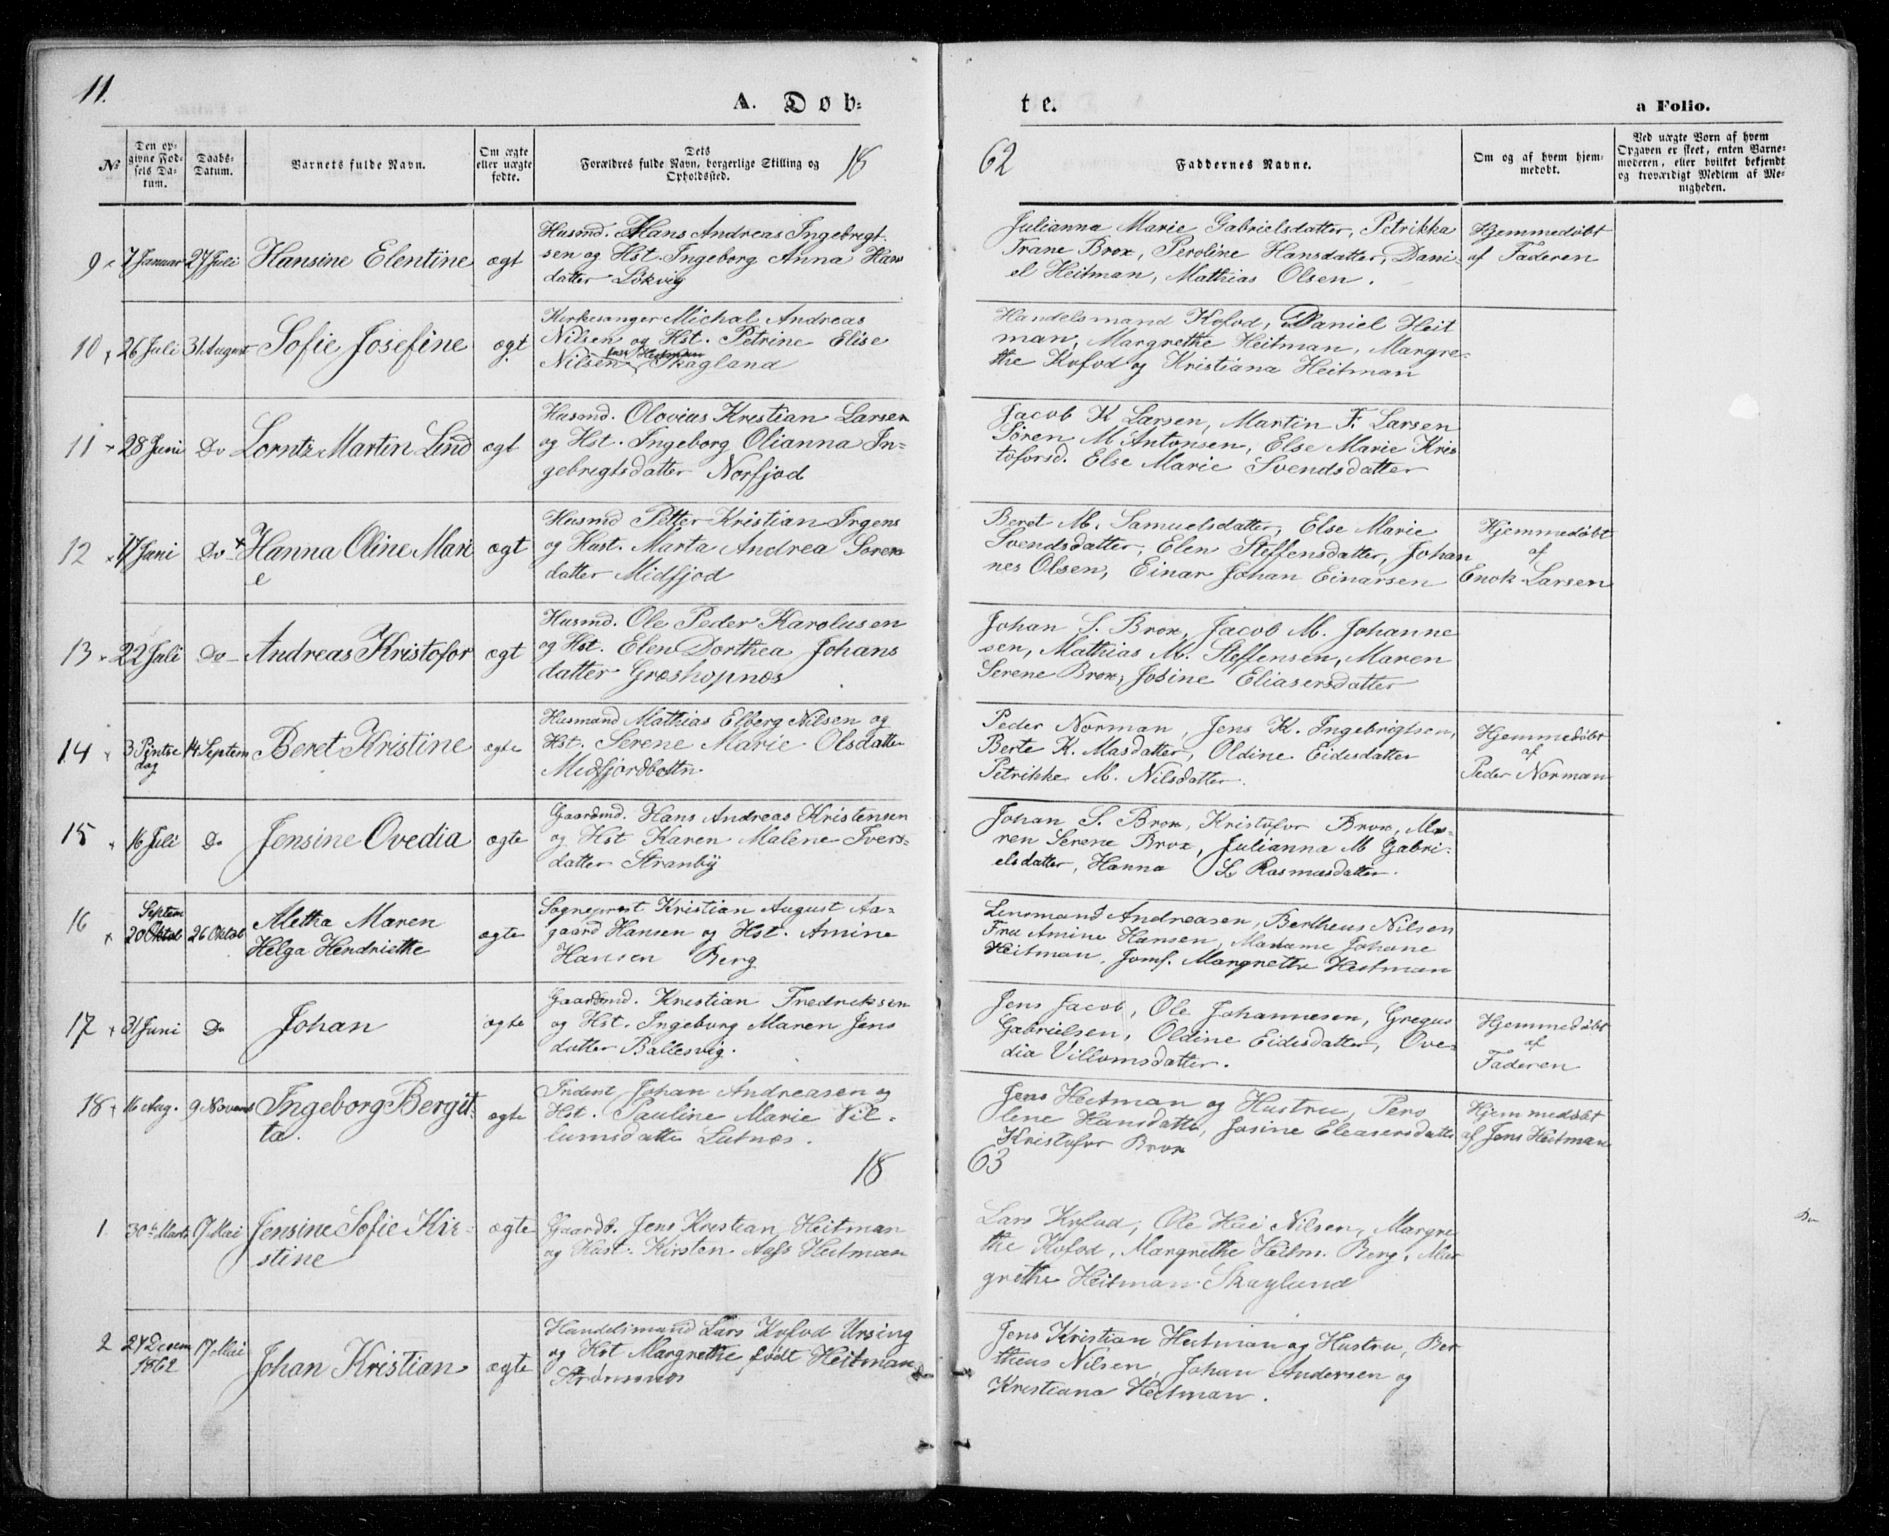 11.
A. Döb=
te.
a Folio.
No
Den op-
givne Fød-
sels Da-
tum.
Daabs-
Datum.
Barnets fulde Navn.
Om ægte
eller uægte
fødte.
Dets
Forældres fulde Navn, borgerlige Stilling og
Opholdssted.
18
62
Faddernes Navne.
Om og af hvem hjem-
medøbt.
Ved uægte Børn af hvem
Opgaven er skeet, enten Barne-
moderen, eller hvilket bekjendt
og troværdigt Medlem af Me-
nigheden.
9 7 Januar 27 Juli Hansine Elentine ægt
Husmd. Hans Andreas Ingebrigt-
sen og Hst. Ingeborg Anna Hans
datter Lökvig
Julianna Marie Gabrielsdatter, Petrikka
Trane Brox, Peroline Hansdatter, Dani-
el Heitman, Mathias Olsen.
Hjemmedøbt
af Faderen
10 26 Juli 31 August Sofie Josefine ægt
Kirkesanger Michal Andreas
Nilsen og Hst. Petrine Elise
Nilsen Skagland
Handelsmand Kofod, Daniel Heit
man, Margrethe Heitman, Margre-
the Kofod og Kristiana Heitman
11 28 Juni Do Lorntz Martin Lind ægt
Husmd. Olovius Kristian Larsen
og Hst. Ingeborg Olianna In-
gebrigtsdatter Norfjod
Jacob K Larsen, Martin F. Larsen
Sören M Antonsen, Else Marie Kris
tofersd. Else Marie Svendsdatter
12 17 Juni Do Hanna Oline Mari
e
ægt
Husmd Petter Kristian Irgens
og Hust. Marta Andrea Soren
datter Midfjod
Beret M. Samuelsdatter, Else Marie
Svendsdatter, Elen Steffensdatter, Johan
nes Olsen, Einar Johan Einarsen
Hjemmedøbt
af
Enok Larsen
13 22 Juli Do Andreas Kristofor ægt
Husmd. Ole Peder Karolusen
og Hst. Elen Dorthea Johans
datter Græshopnæs
Johan S. Brox, Jacob M. Johanne
sen, Mathias M. Steffensen, Maren
Serene Brox, Josine Eliasersdatter
14 3 Pintse
dag
14 Septem Beret Kristine ægte
Husmand Mathias Elberg Nilsen og
Hst. Serene Marie Olsdatter
Midfjordbottn.
Peder Norman, Jens K. Ingebrigtsen,
Berte K. Masdatter, Oldine Eidesdatter
Petrikke M. Nilsdatter.
Hjemmedøbt
af
Peder Norman
15 16 Juli Do Jensine Ovedia ægte
Gaardmd. Hans Andreas Kristensen
og Hst Karen Malene Ivers-
datter Stranby
Johan S. Brox, Kristofor Brox, Ma-
ren Serene Brox, Julianna M Gabri-
elsdatter, Hanna L Rasmusdatter.
16 Septem
20 Oktob
26 Oktob Metha Maren
Helga Hendriethe
ægte
Sogneprest Kristian August Aa-
gaard Hansen og Hst. Amine
Hansen Berg
Lensmand Andreasen, Bertheus Nilsen
Fru Amine Hansen, Madame Johane
Heitman, Jomf. Margrethe Heitman
17 31 Juni Do Johan ægte
Gaardmd. Kristian Fredriksen
og Hst. Ingeborg Maren Jens
datter Ballesvig.
Jens Jacob, Ole Johannesen, Gregus
Gabrielsen, Oldine Eidesdatter, Ove-
dia Villomsdatter.
Hjemmedøbt
af
Faderen
18 16 Aug. 9 Novemb Ingeborg Bergit-
ta.
ægte
Inderst Johan Andreasen og
Hst. Pauline Marie Vil-
lumsdatte Lutnæs.
Jens Heitman og Hustru, Pero
line Hansdatte, Josine Eleasersdatte
Kristofor Brox
Hjemmedøbt
af Jens Heitman
18
63
1 30te Marts 17 Mai Jensine Sofie Kir-
stine
ægte
Gaardb. Jens Kristian Heitman
og Hust. Kirsten Aass Heitman
Lars Kofod, Ole Hai Nilsen, Margre
the Kofod, Margrethe Heitm. Berg, Mar
grethe Heitman Skaglund
2 27 Decem
1862
17 Mai Johan Kristian ægte
Handelsmand Lars Kofod Ursing
og Hst Margrethe født Heitman
Strømsnæs
Jens Kristian Heitman og Hustru, Ber
theus Nilsen, Johan Andersen og
Kristiana Heitman.